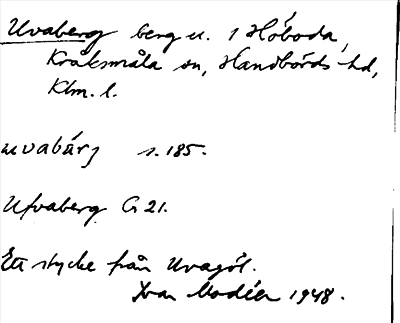 Uvaberg berg u. 1 Höboda,
Kråksmåla sn, Handbörds hd,
Klm. l.
uvabárj s. 185.
Ufvaberg G 21.
Ett stycke från Uvagöl.
Ivar Modéer 1948.